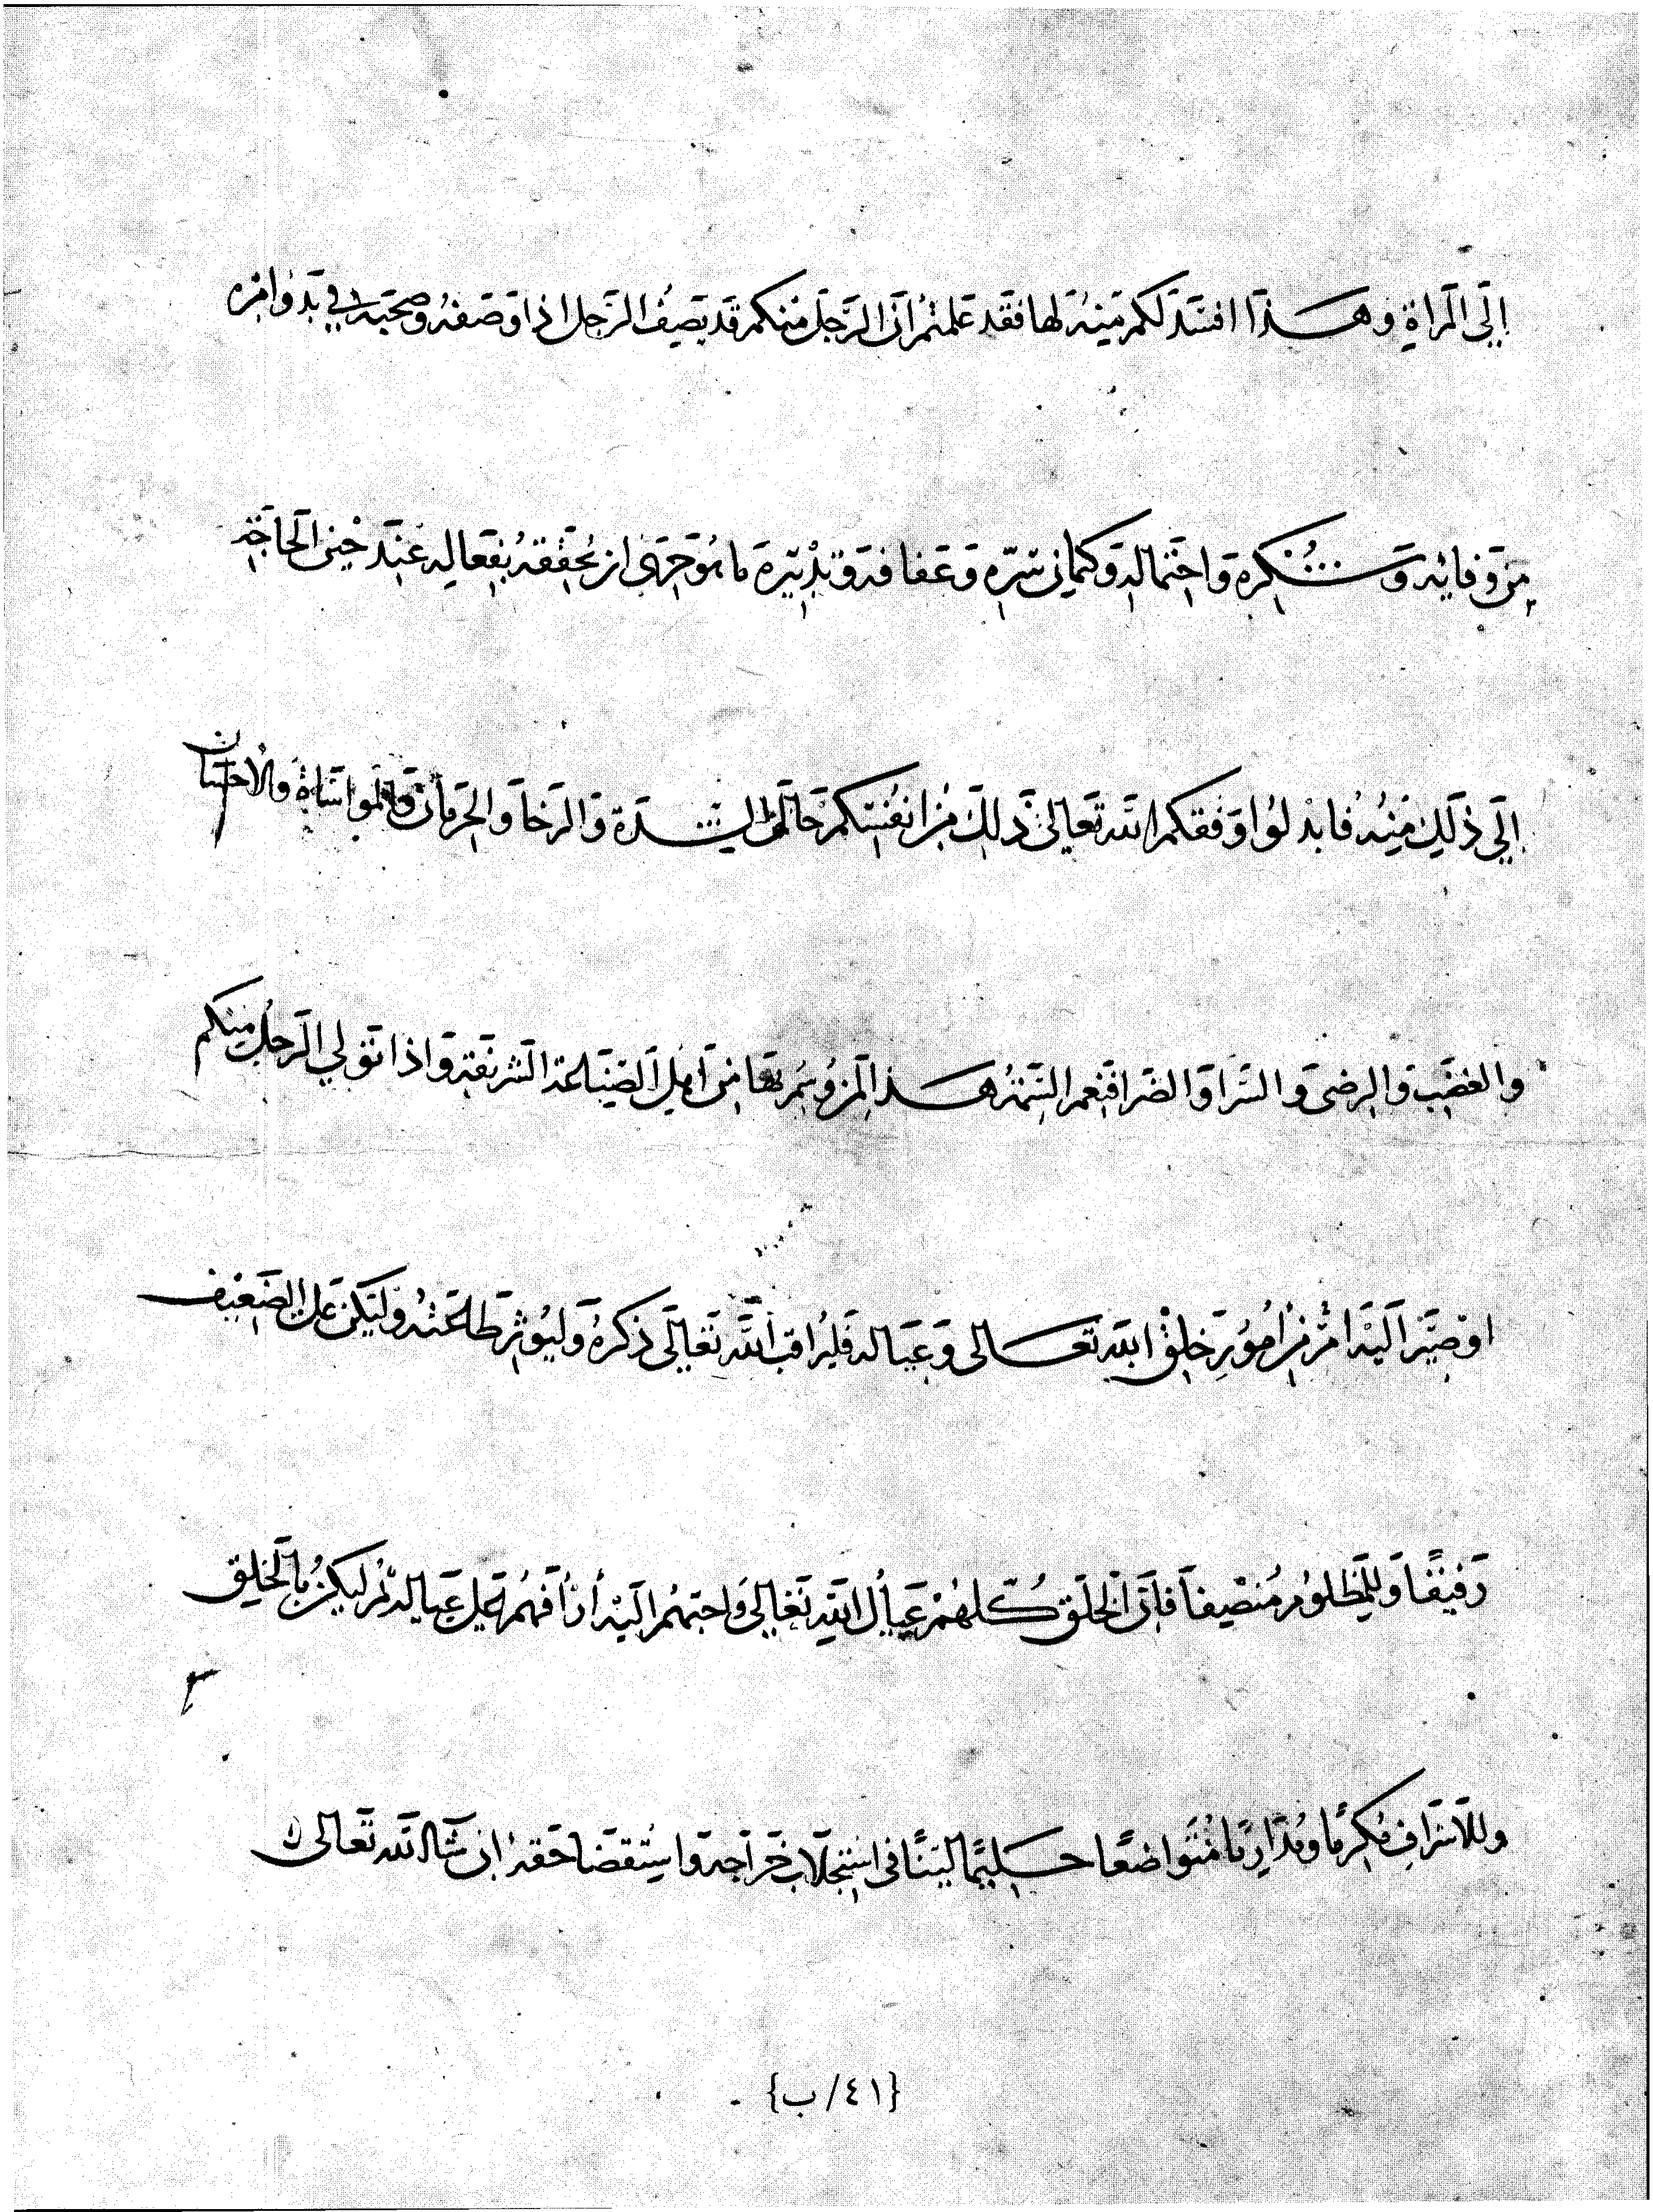 إلى المرأة وهذا افسد لكم منه لها فقد علمتم أن الرجل منكم قد يصف الرجل اذا وصفه وصحبه في بدو امره
من وفائه وشكره واحتماله وكتمان سره وعفافه وتدبيره ما هو حري ان يحققه بفعاله عند حين الحاجة
إلى ذلك منه فابذلوا وفقكم الله تعالى ذلك من انفسكم حالة الشدة والرخا والحرمان والمواساة والاحسان
والغضب والرضى والسرا والضرا فنعم السمة هذه لمن وسم بها من أهل الصناعة الشريفة واذا تولي الرجل منكم
او صير اليه امر من امور خلق الله تعالى وعياله فليراقب الله تعالى ذكره وليوثر طاعته وليكن على الضعيف
رفيقا وللمظلوم منصفا فان الخلق كلهم عيال الله تعالى واحبهم اليه أرأفهم على عياله ثم ليكن بالخلق
وللاشراف مكرما ومداريا متواضعا حليما لينا في استجلاب خراجه واستقضا حقه ان شا الله تعالى
{٤١/ب}